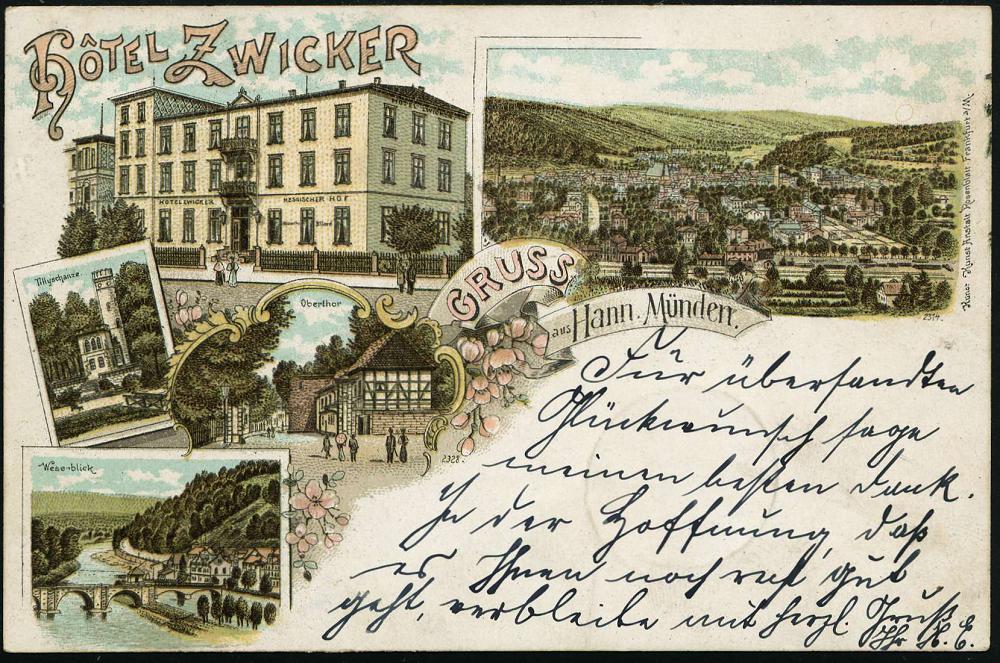 HÔTEL ZWICKER
HOTEL ZWICKER
HESSISCHER HOF
Tillyschanze.
Oberthor
2328.
Weserblick
GRUSS
aus Hann. Münden.
2314.
Kunst Anstalt Rosenblatt Frankfurt a/M.
Für übersandten
Glückwunsch sage
meinen besten Dank.
In der Hoffnung, daß
es Ihnen noch recht gut
geht, verbleibe mit herzl. Gruß
Ihr H. E.